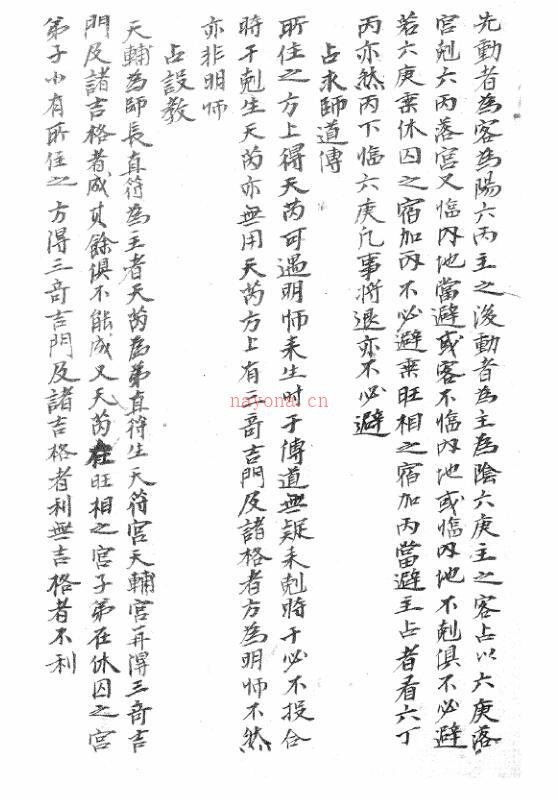 先動者為客為陽六丙主之後動者為主為陰六庚主之客占以六庚落
宮剋六丙落宮又臨內地當避或客不臨內地或臨內地不剋俱不必避
若六庚乘休囚之宿加丙不必避乘旺相之宿加丙當避主占者看六丁
丙亦然丙下臨六庚凡事將退亦不必避
占求師道傳
所住之方上得天芮可遇明師来生时干傳道無疑来剋時干必不投合
時干剋生天芮亦無用天芮方上有三奇吉門及諸格者方為明師不然
亦非明師
占設教
天輔為師長直符為主者天芮為弟直符生天符宮天輔宮再得三奇吉
門及諸吉格者成其餘俱不能成又天芮在旺相之宮子弟在休囚之宮
弟子少有所住之方得三奇吉門及諸吉格者利無吉格者不利
nayona.cn